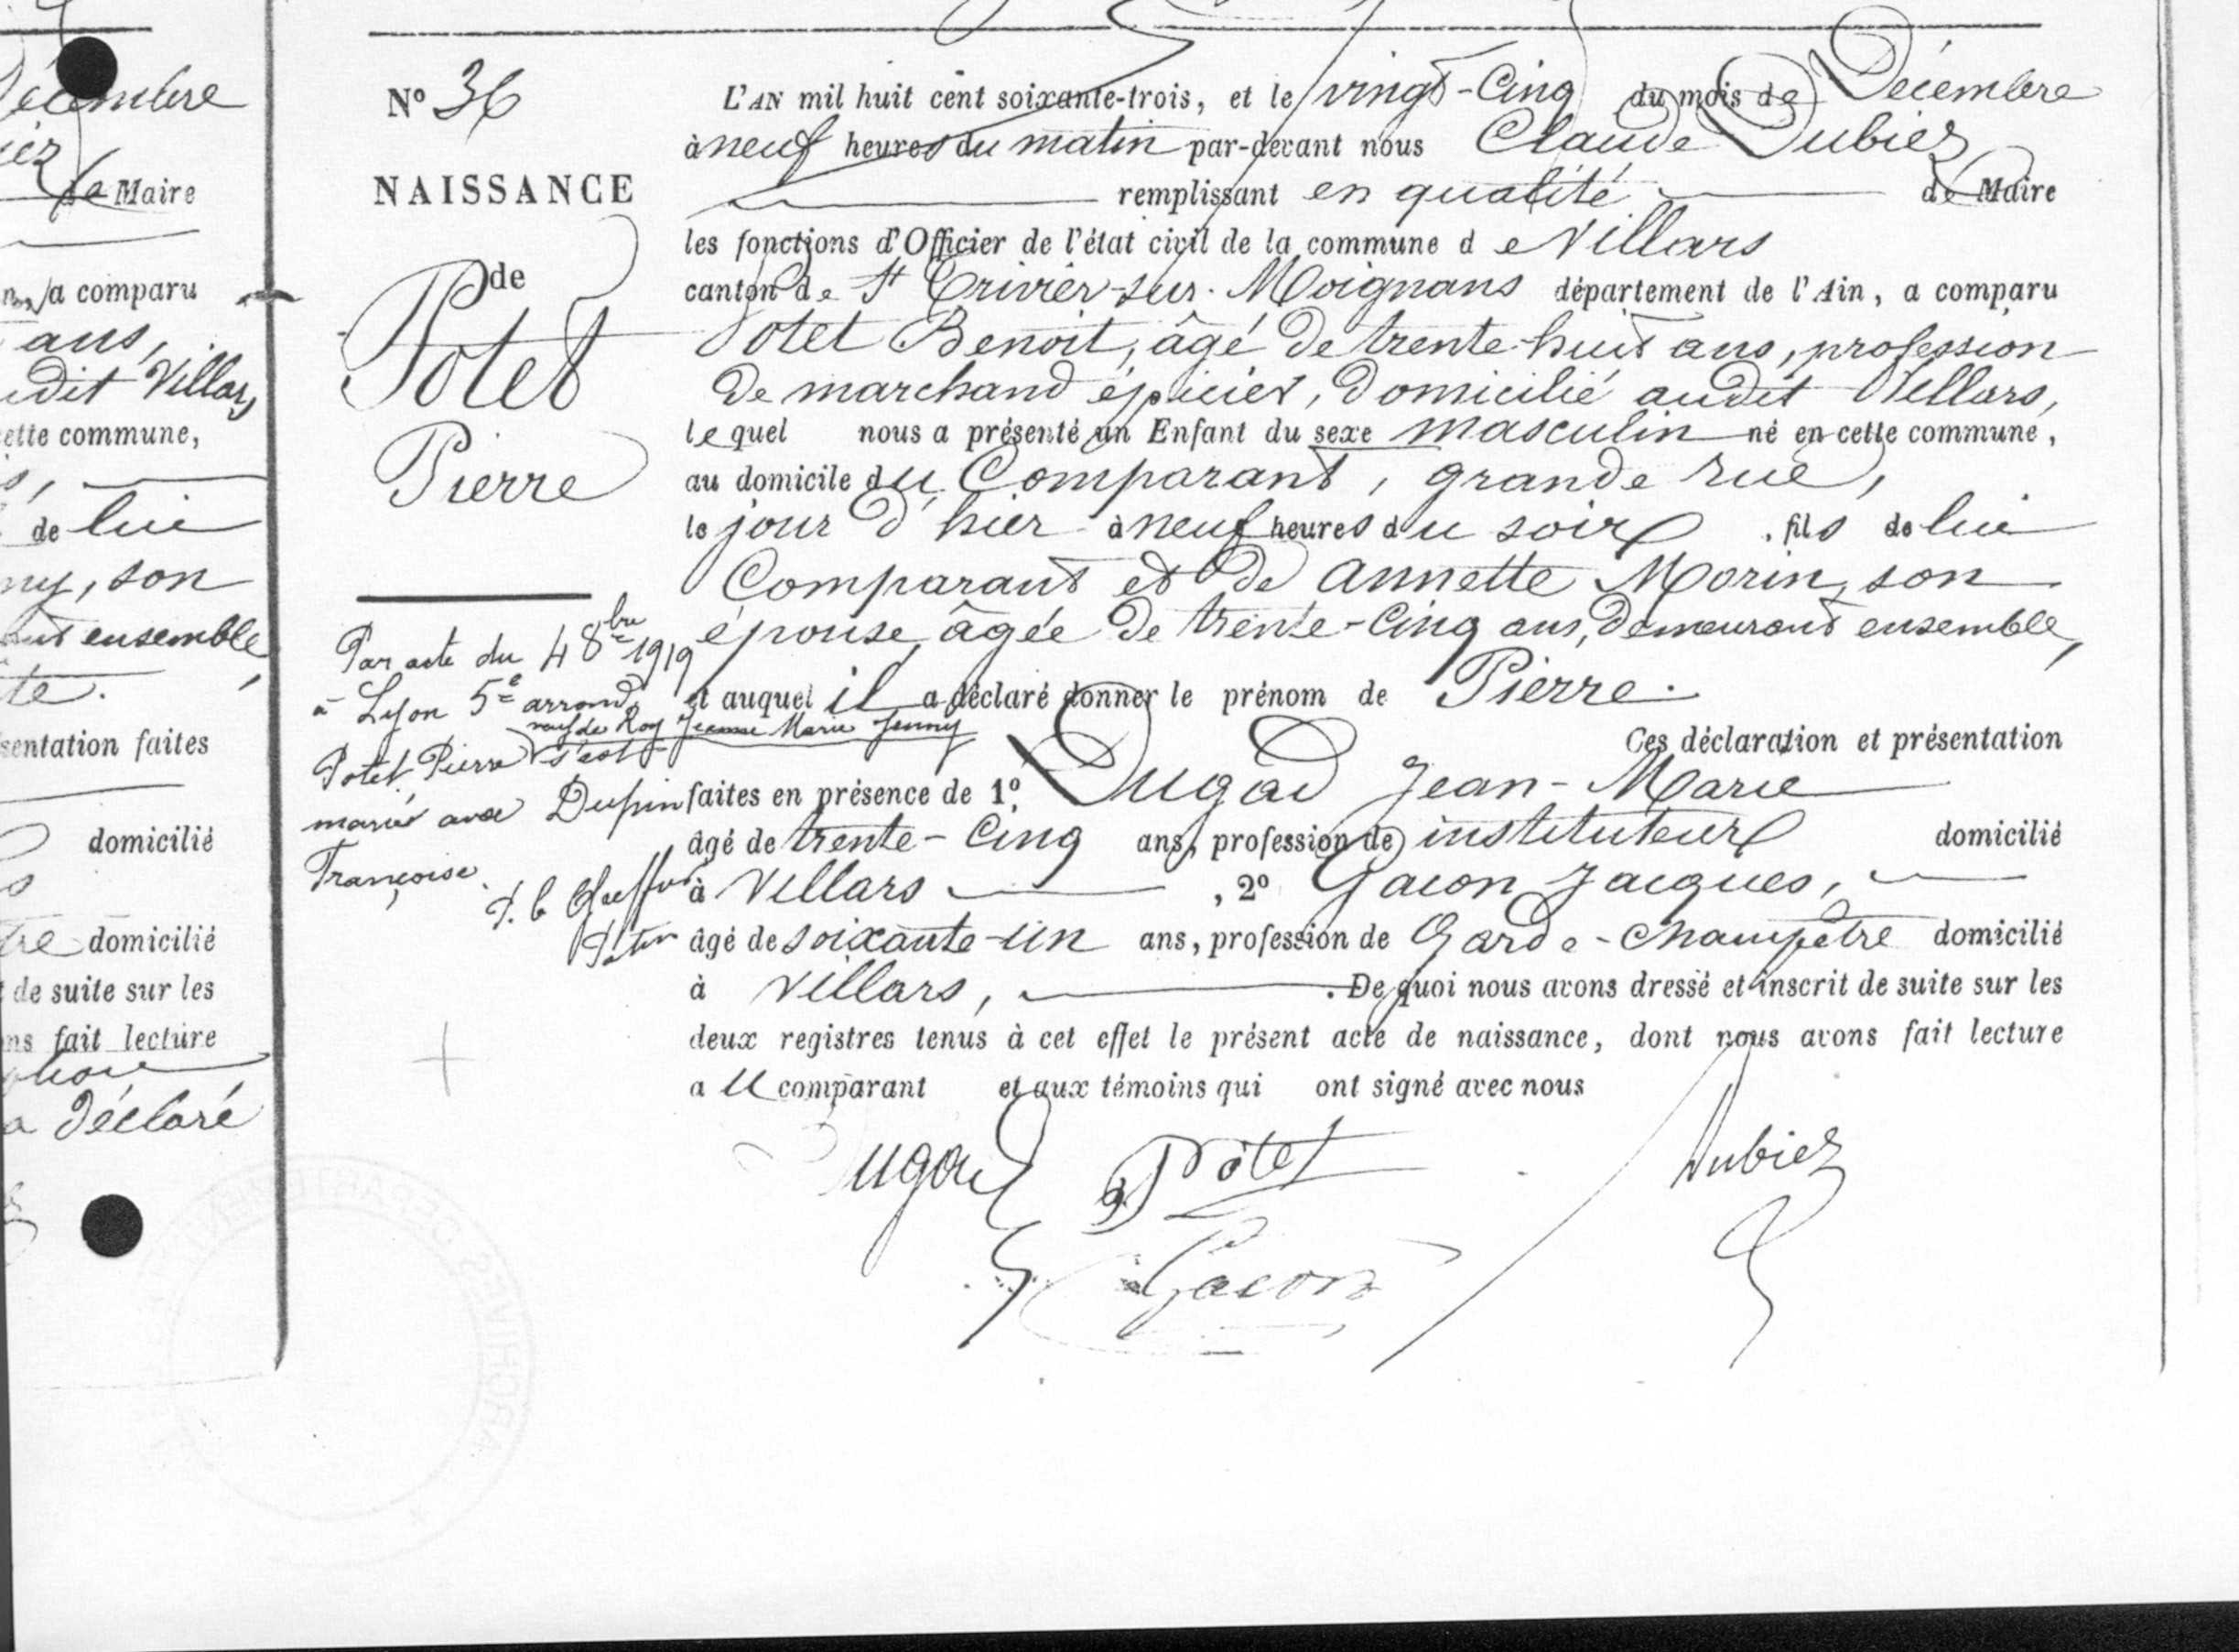 écembre
iez
de Maire
a comparu
ans,
udit Villars
cette commune,
de lui
ny, son
ant ensemble,
te.
sentation faites
domicilié
tre domicilié
de suite sur les
ns fait lecture
a déclaré
N° 36
NAISSANCE
de
Potet
Pierre
L'AN mil huit cent soixante-trois, et le vingt-Cinq du mois de Décembre
à neuf heures du matin par-devant nous Claude Dubiez
remplissant en qualité de Maire
les fonctions d'Officier de l'état civil de la commune de Villars
canton de St Trivier-sur-Moignans département de l'Ain, a comparu
Potet Benoit, âgé de trente-huit ans, profession
de marchand épicier, domicilié audit Villars,
lequel nous a présenté un Enfant du sexe masculin né en cette commune,
au domicile du Comparant, grande rue,
le jour d'hier à neuf heures du soir, fils de lui
Comparant et de Annette Morin, son
épouse, âgée de trente-Cinq ans, demeurant ensemble,
et auquel il a déclaré donner le prénom de Pierre.
Ces déclaration et présentation
faites en présence de 1° Dugad Jean-Marie
âgé de trente-Cinq ans, profession de instituteur domicilié
à Villars, 2° Gacon Jacques,
âgé de soixante-un ans, profession de Garde-Champêtre domicilié
à Villars, . De quoi nous avons dressé et inscrit de suite sur les
deux registres tenus à cet effet le présent acte de naissance, dont nous avons fait lecture
au comparant et aux témoins qui ont signé avec nous
Par acte du 4 8bre 1919
à Lyon 5e arrond.
veuf de Roy Jeanne Marie Jenny
Potet Pierre s'est
marié avec Dupin
Françoise.
Dugad Potet Dubiez
Gacon
ARCHIVES DEPARTEMEN